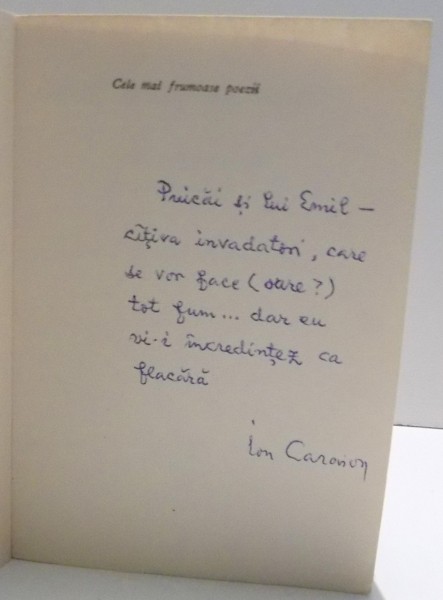 Cele mai frumoase poezii
Puicăi și lui Emil —
cîțiva invadatori, care
se vor face (oare?)
tot fum... dar eu
vi-i încredințez ca
flacără
Ion Caraion